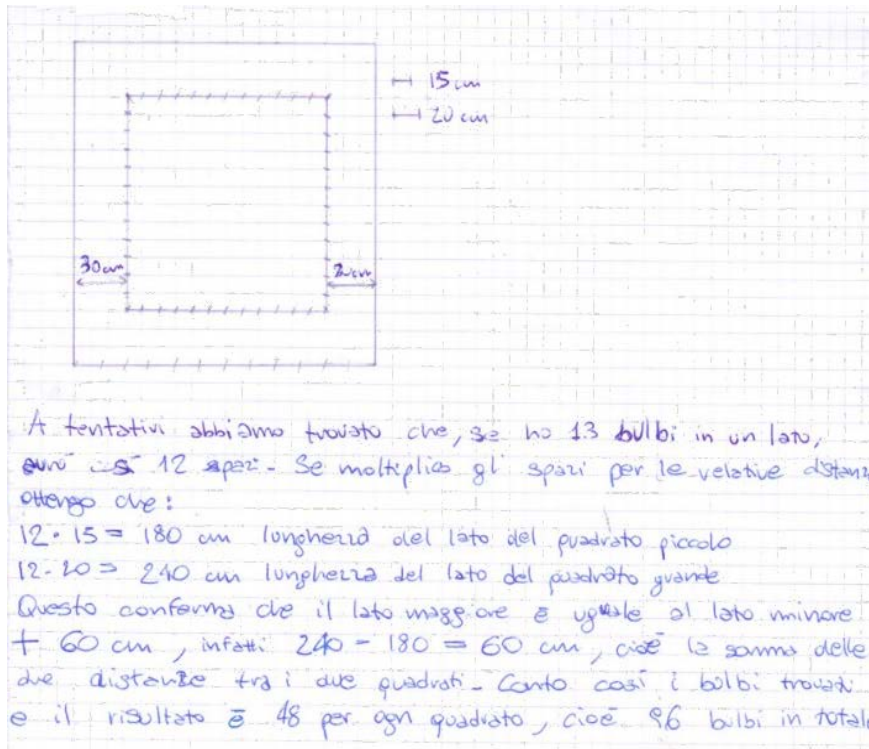 15 cm
20 cm
30 cm
A tentativi abbiamo trovato che, se ho 13 bulbi in un lato,
avrò 12 spazi. Se moltiplico gl spazi per le relative distanz
ottengo che:
12 · 15 = 180 cm lunghezza del lato del quadrato piccolo
12 · 20 = 240 cm lunghezza del lato del quadrato grande
Questo conferma che il lato maggiore è uguale al lato minore
+ 60 cm, infatti 240 - 180 = 60 cm, cioè la somma delle
due distanze tra i due quadrati. Conto così i bulbi trovati
e il risultato è 48 per ogn quadrato, cioè 96 bulbi in total